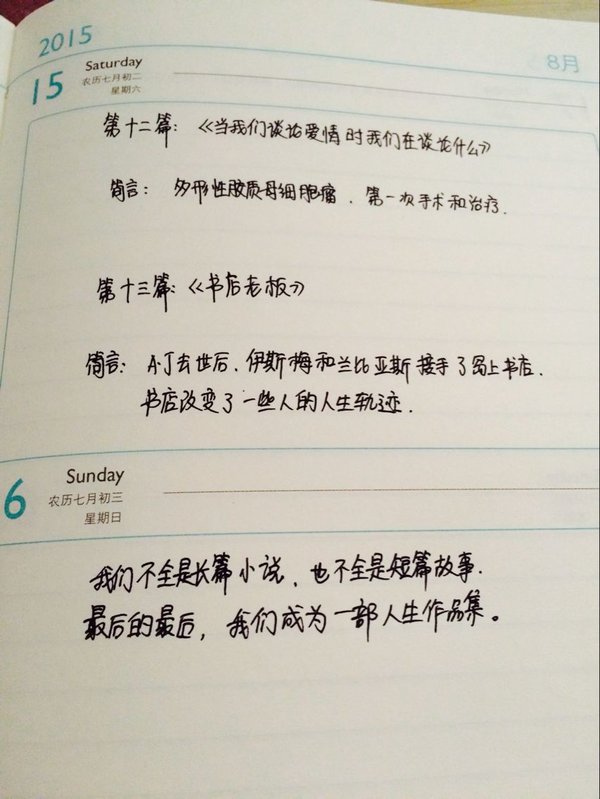 2015
8月
15
Saturday
农历七月初二
星期六
第十二篇:《当我们谈论爱情时我们在谈论什么》
简言: 多形性胶质母细胞瘤、第一次手术和治疗.
第十三篇:《书店老板》
简言: A·J去世后、伊斯梅和兰比亚斯接手了岛上书店.
书店改变了一些人的人生轨迹.
6
Sunday
农历七月初三
星期日
我们不全是长篇小说、也不全是短篇故事.
最后的最后,我们成为一部人生作品集。